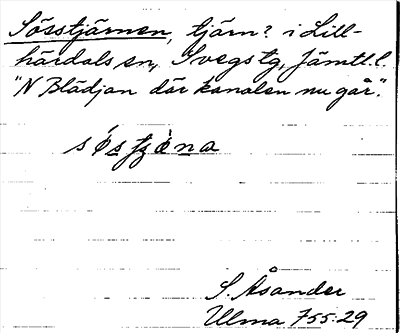 Sösstjärnen, tjärn? i Lill-
härdals sn, Svegs tg, Jämtl. l.
"N Blädjan där kanalen nu går".
S. Åsander
Ulma 755:29